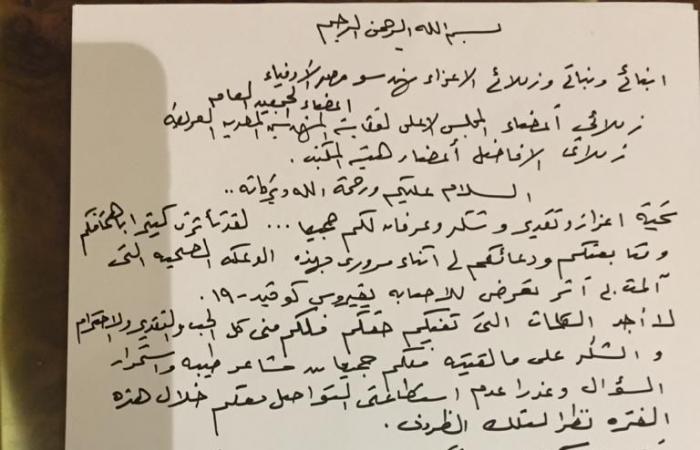 بسم الله الرحمن الرحيم
ابنائي وبناتي وزملائي الاعزاء مهندسو مصر الأوفياء
اعضاء الجمعية العامه
زملائي أعضاء المجلس الاعلى لنقابة المهندسين المصرية العريقة
زملائي الافاضل أعضاء هيئة المكتب .
السلام عليكم ورحمة الله وبركاته ..
تحية اعزاز وتقدير وشكر وعرفان لكم جميعا ... لقد تأثرت كثيرا باهتمامكم
ومتابعتكم ودعائكم لي أثناء مروري بهذه الوعكه الصحيه التى
ألمت بي أثر تعرضي للاصابه بفيروس كوفيد-١٩ .
لا أجد الكلمات التى تفيكم حقكم فلكم منى كل الحب والتقدير والاحترام
والشكر على ما لقيته منكم جميعا من مشاعر طيبه واستمرار
السؤال وعذرا عدم استطاعتى التواصل معكم خلال هذه
الفتره نظرا لتلك الظروف .